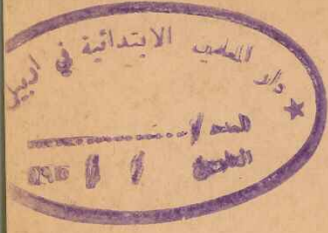 دار المعلمين الابتدائية في اربيل
العدد /
التاريخ / / ١٩٥